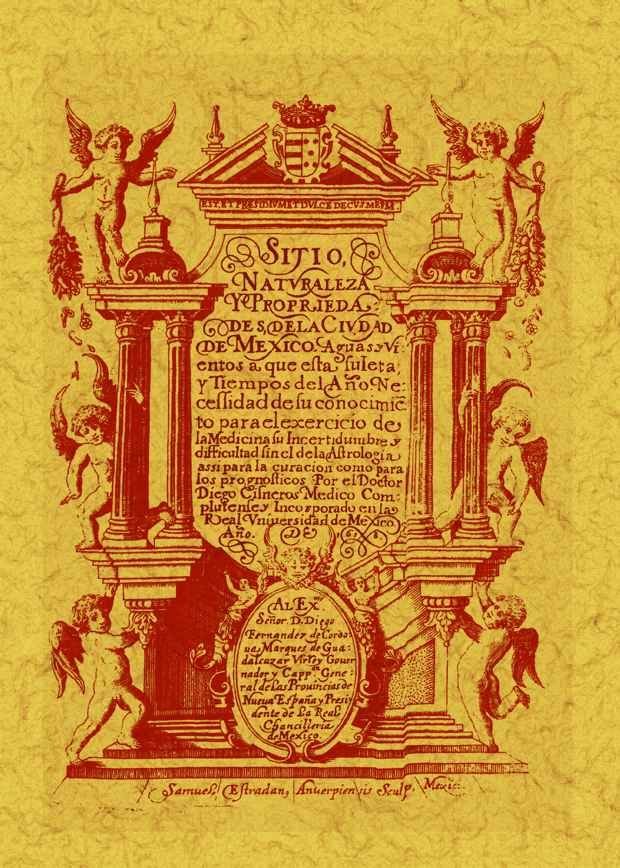 EST. ET PRESIDIVM ET DVLCE DECVS MEVM
SITIO,
NATVRALEZA
Y PROPRIEDA-
DES, DE LA CIVDAD
DE MEXICO. Aguas y Vi-
entos a que esta suieta;
y Tiempos del Año. Ne-
cessidad de su conocimiē
to para el exercicio de
la Medicina su Incertidumbre y
difficultad sin el de la Astrologia
assi para la curacion como para
los prognosticos. Por el Doctor
Diego Cisneros Medico Com-
plutense, y Incorporado en la
Real Vniversidad de Mexico.
Año. DE 1618
AL EX.mo
Señor. D. Diego
Fernandez de Cordo-
ua, Marques de Gua-
dalcazar Virley Gouer-
nador y Capp.an Gene-
ral de Las Provincias de
Nueva España y Presi-
dente de La Real
Chancilleria
de Mexico.
Samuel, Estradan, Antuerpiensis Sculp, Mexic: